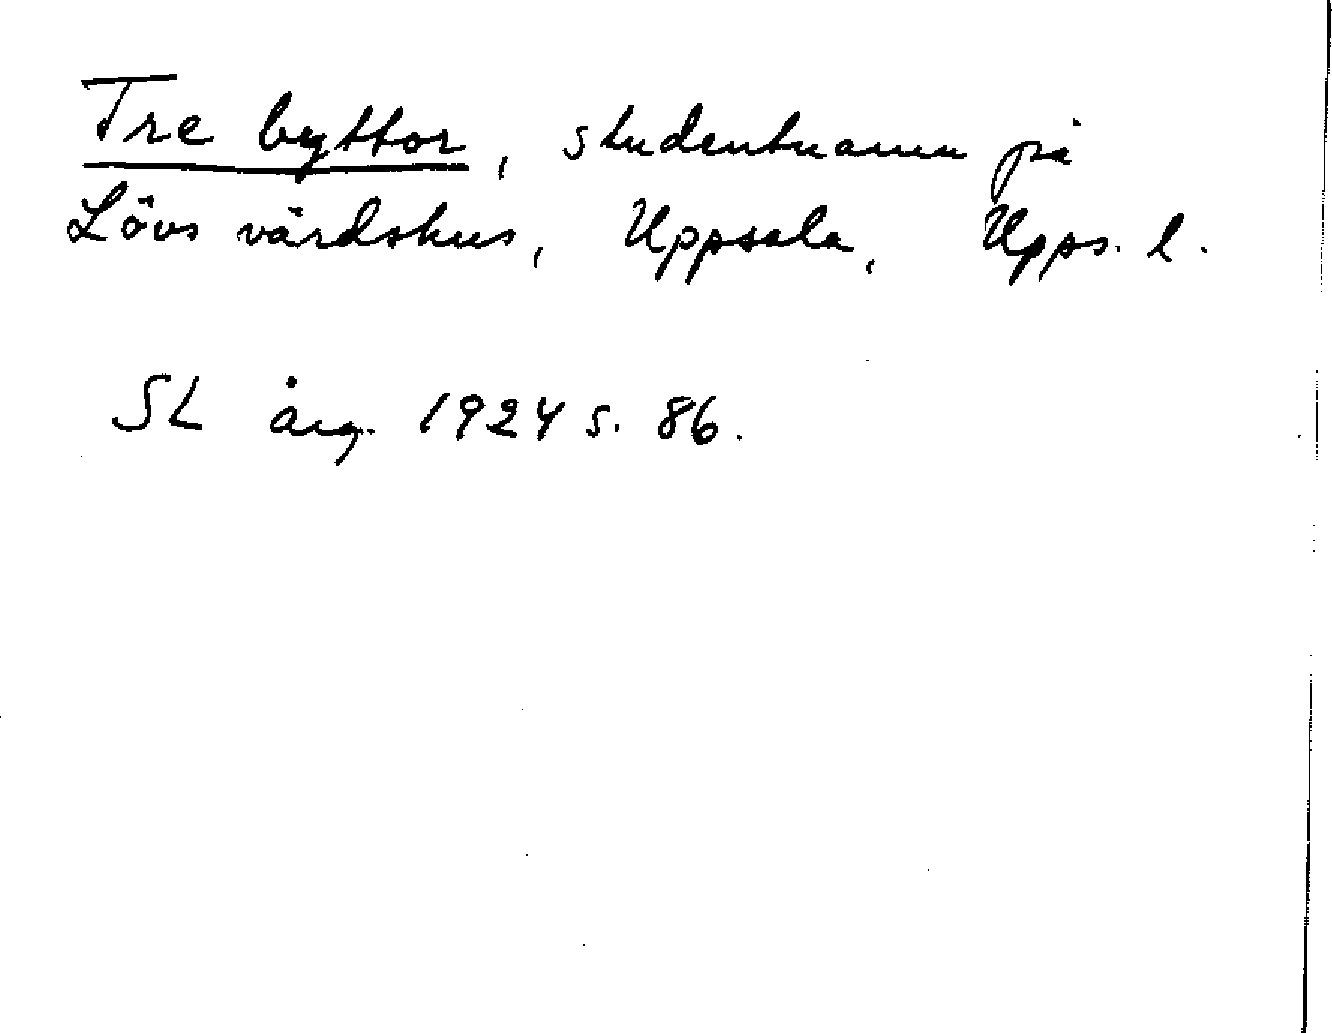 Tre byttor, studentnamn på
Lövs värdshus, Uppsala, Upps. l.
SL årg. 1924 s. 86.